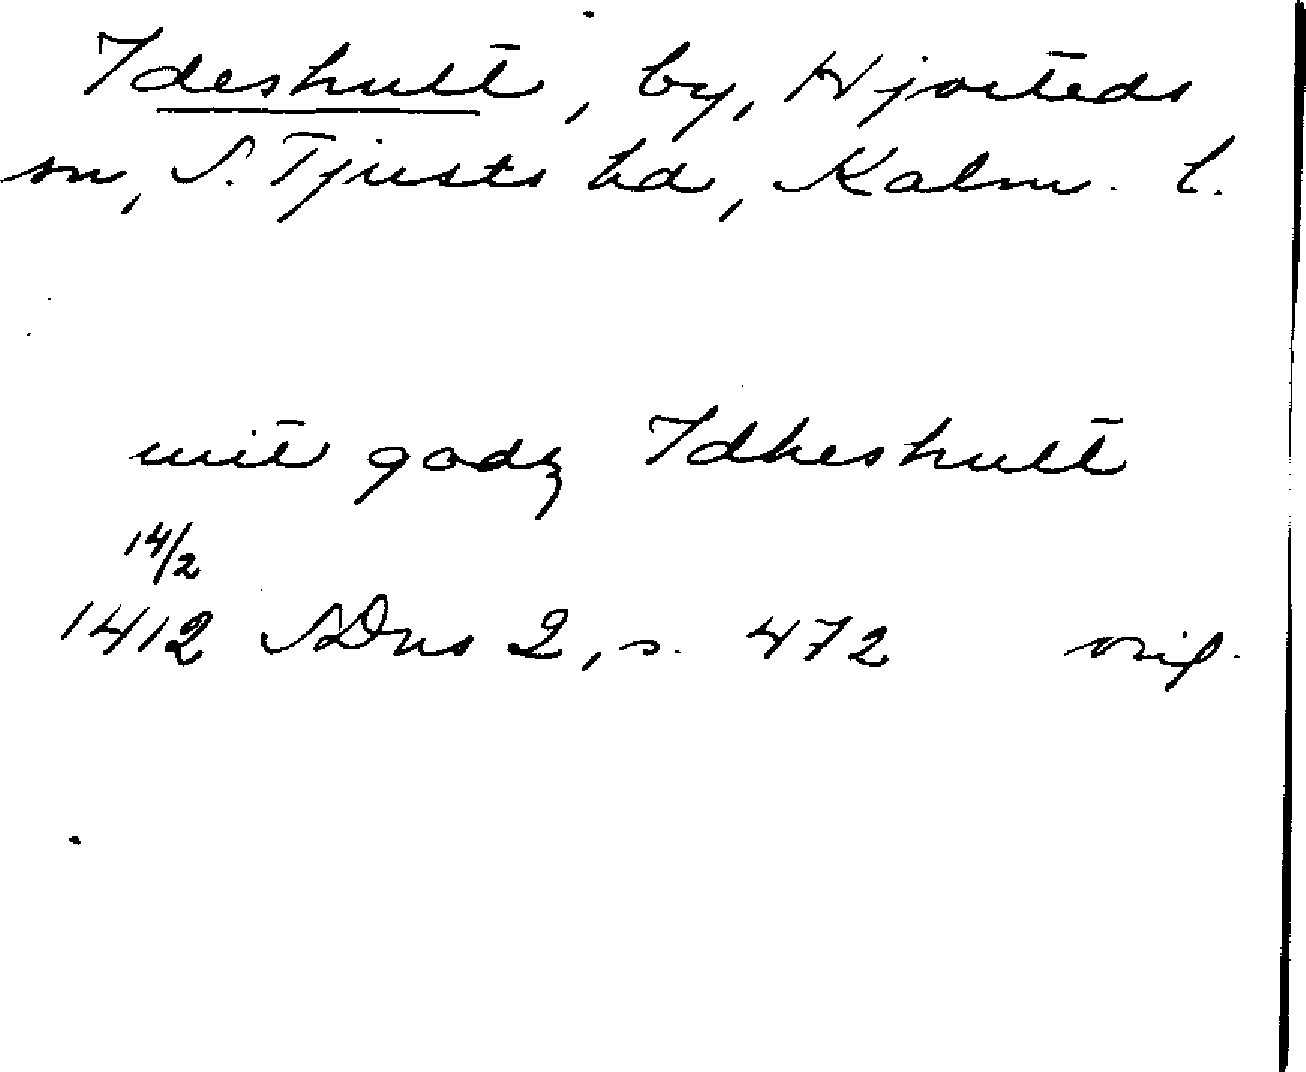 Ideshult, by, Hjorteds
sn, S. Tjusts hd, Kalm. l.
mit godz Idheshult
14/2
1412 SDns 2, s. 472 orig.